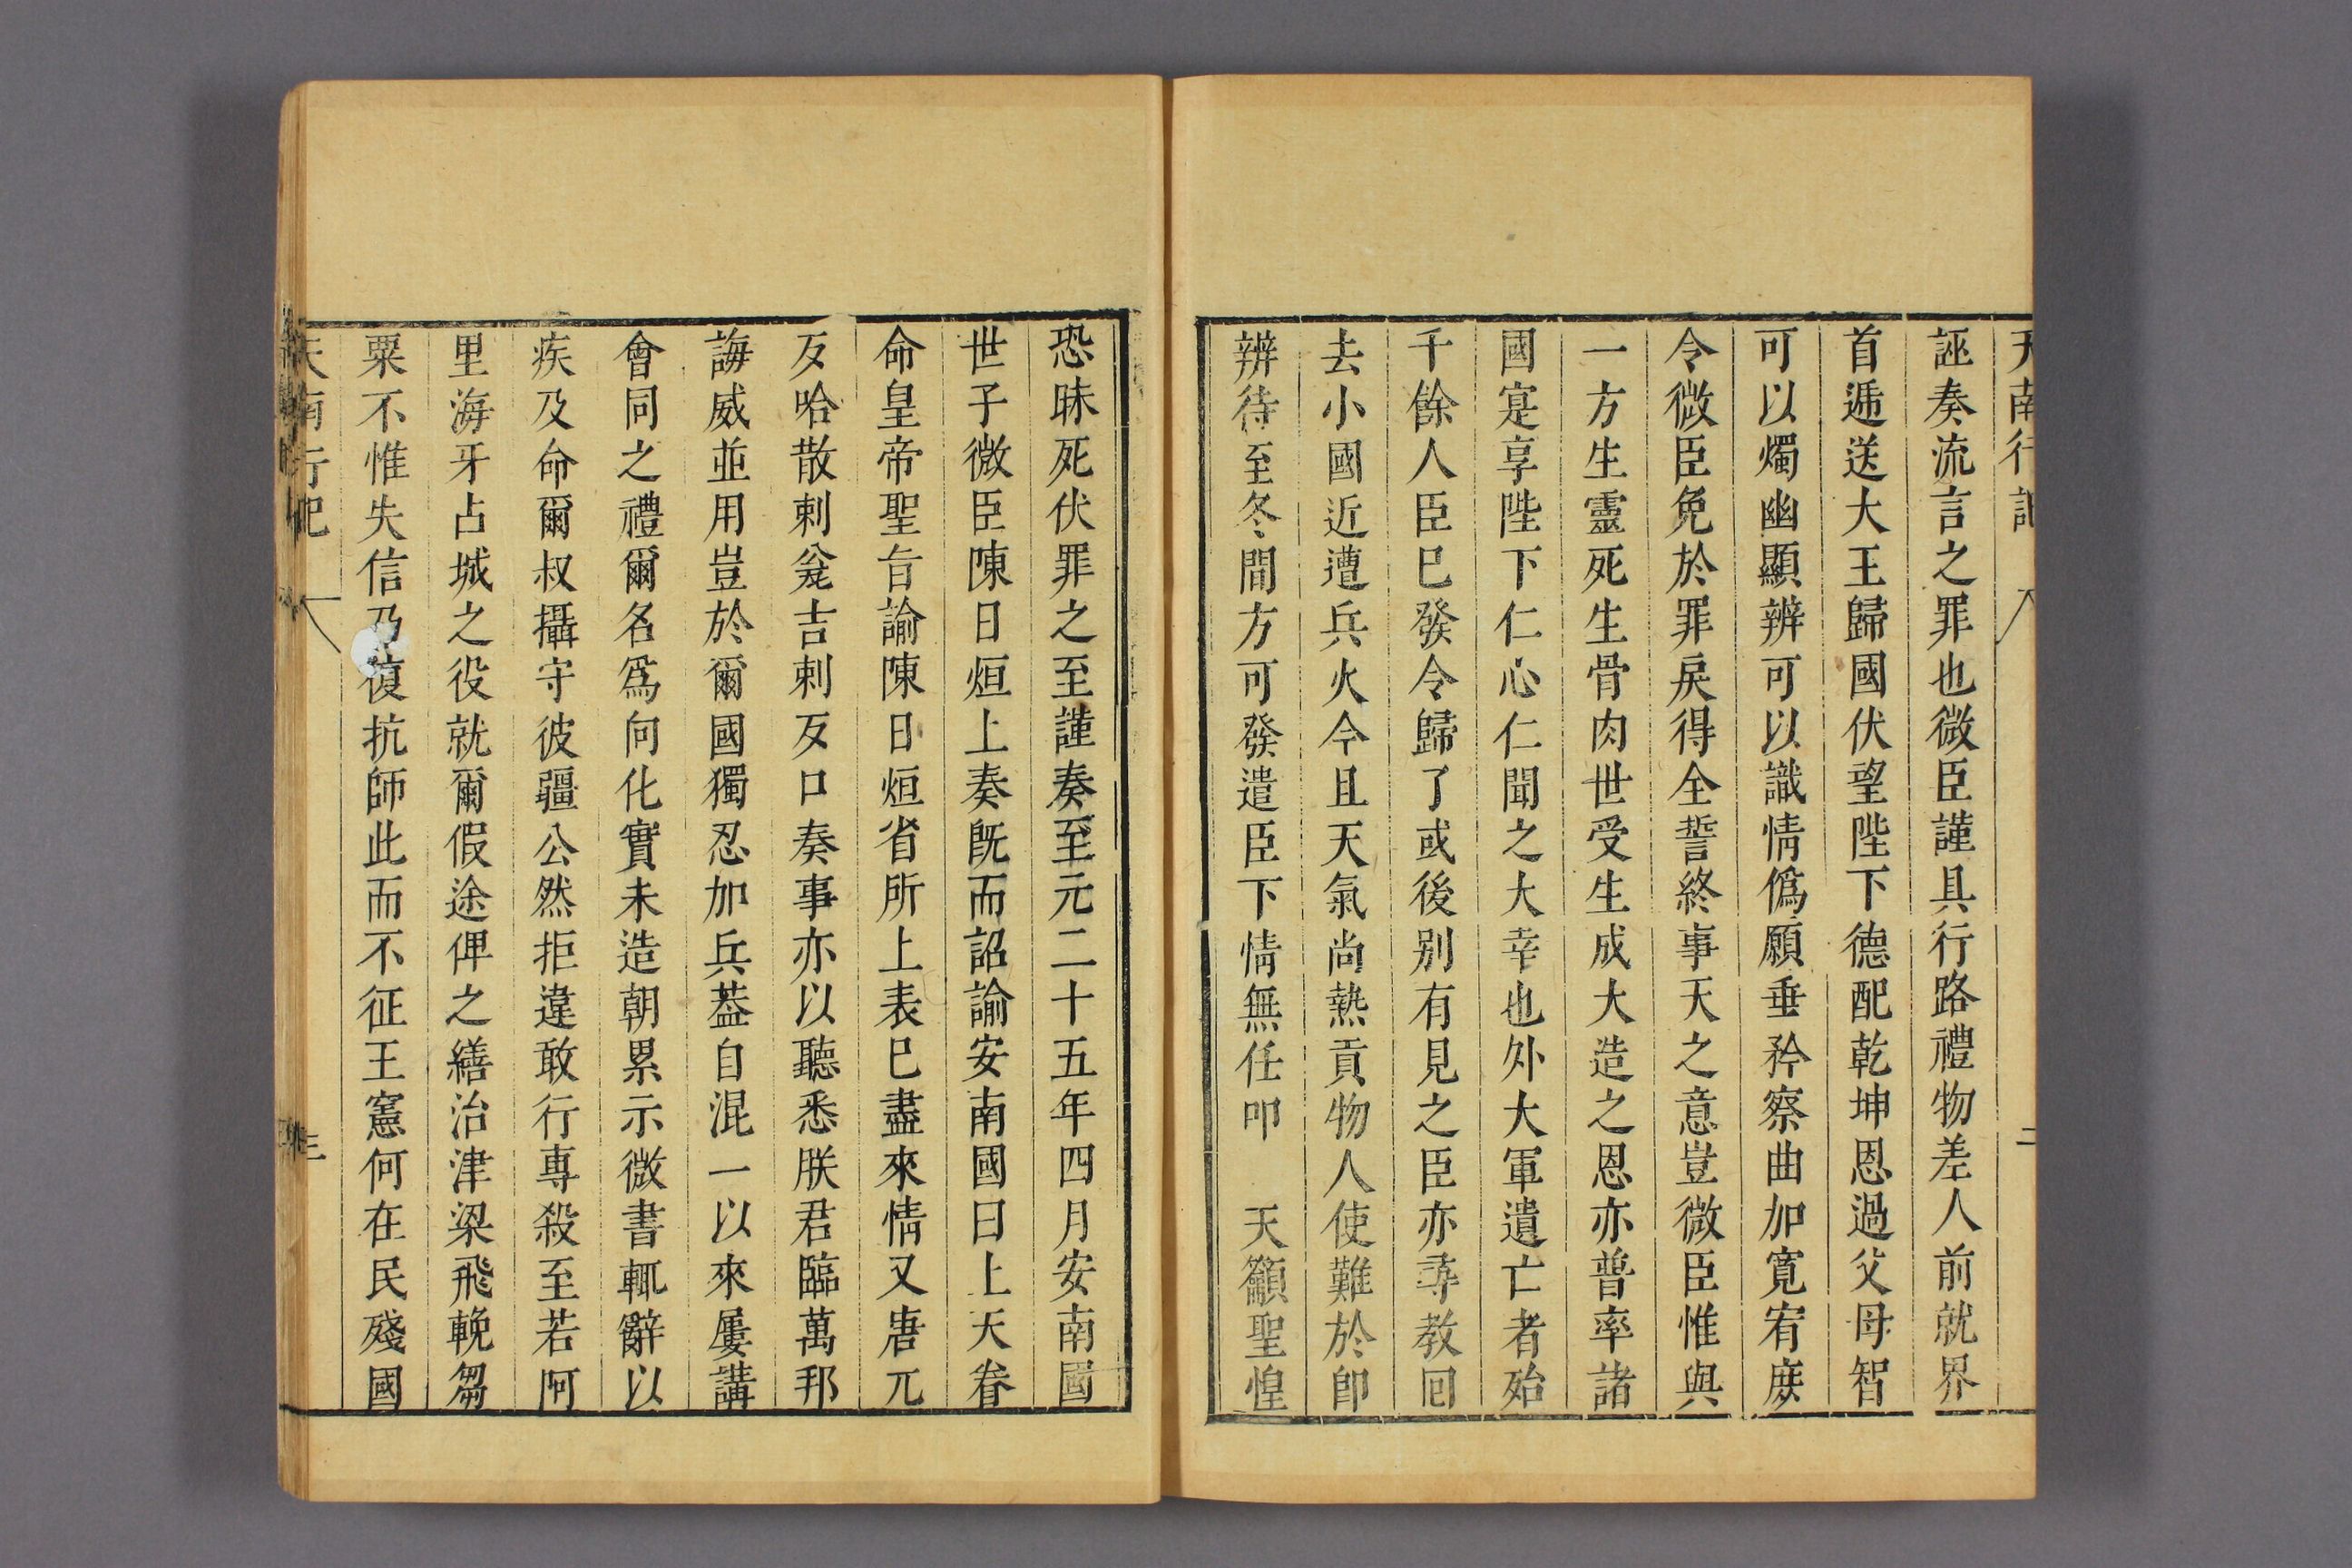 天南行記 二
誣奏流言之罪也微臣謹具行路禮物差人前就界
首遞送大王歸國伏望陛下德配乾坤恩過父母智
可以燭幽顯辨可以識情僞願垂矜察曲加寬宥庻
令微臣免於罪戾得全誓終事天之意豈微臣惟與
一方生靈死生骨肉世受生成大造之恩亦普率諸
國寔享陛下仁心仁聞之大幸也外大軍遺亡者殆
千餘人臣巳發令歸了或後别有見之臣亦尋教囘
去小國近遭兵火今且天氣尚熱貢物人使難於卽
辨待至冬間方可發遣臣下情無任叩 天籲聖惶
恐昧死伏罪之至謹奏至元二十五年四月安南國
世子微臣陳日烜上奏旣而詔諭安南國曰上天眷
命皇帝聖旨諭陳日烜省所上表巳盡來情又唐兀
反哈散剌瓮吉剌反口奏事亦以聽悉朕君臨萬邦
誨威並用豈於爾國獨忍加兵葢自混一以來屢講
會同之禮爾名爲向化實未造朝累示微書輒辭以
疾及命爾叔攝守彼疆公然拒違敢行專殺至若阿
里海牙占城之役就爾假途俾之繕治津梁飛輓芻
粟不惟失信乃復抗師此而不征王憲何在民殘國
天南行記 三